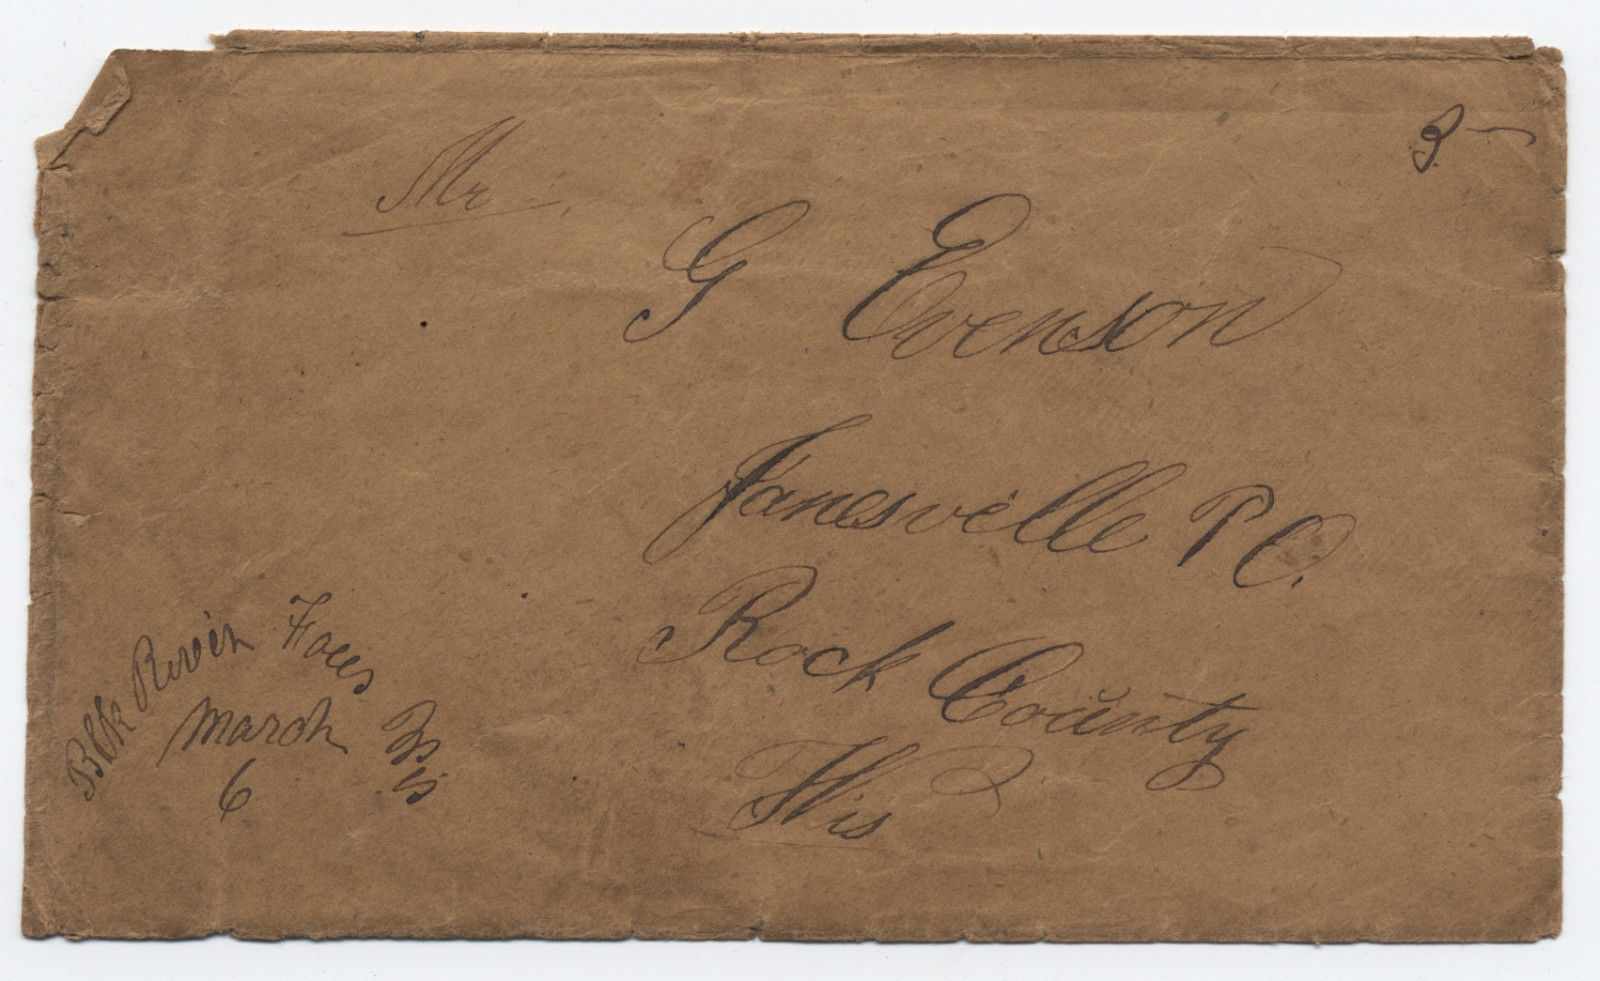 Mr
3
G Evenson
Janesville P O.
Rock County
Wis
Blk River Falls Wis
March
6